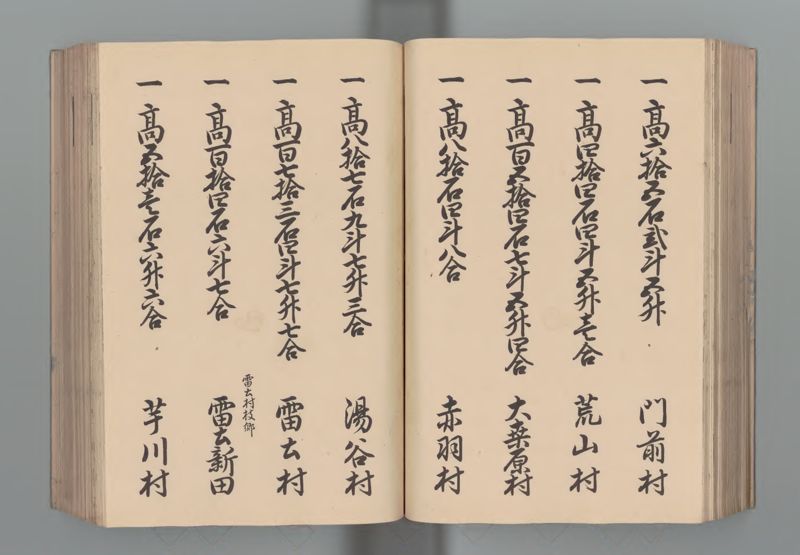 一 高六拾五石弐斗五升 門前村
一 高四拾四石四斗五升壱合 荒山村
一 高百五拾四石七斗五升四合 大桑原村
一 高八拾石四斗八合 赤羽村
一 高八拾七石九斗七升三合 湯谷村
一 高百七拾三石四斗七升七合 雷土村
雷土村枝郷
一 高百拾四石六斗七合 雷土新田
一 高五拾壱石六升六合 芋川村